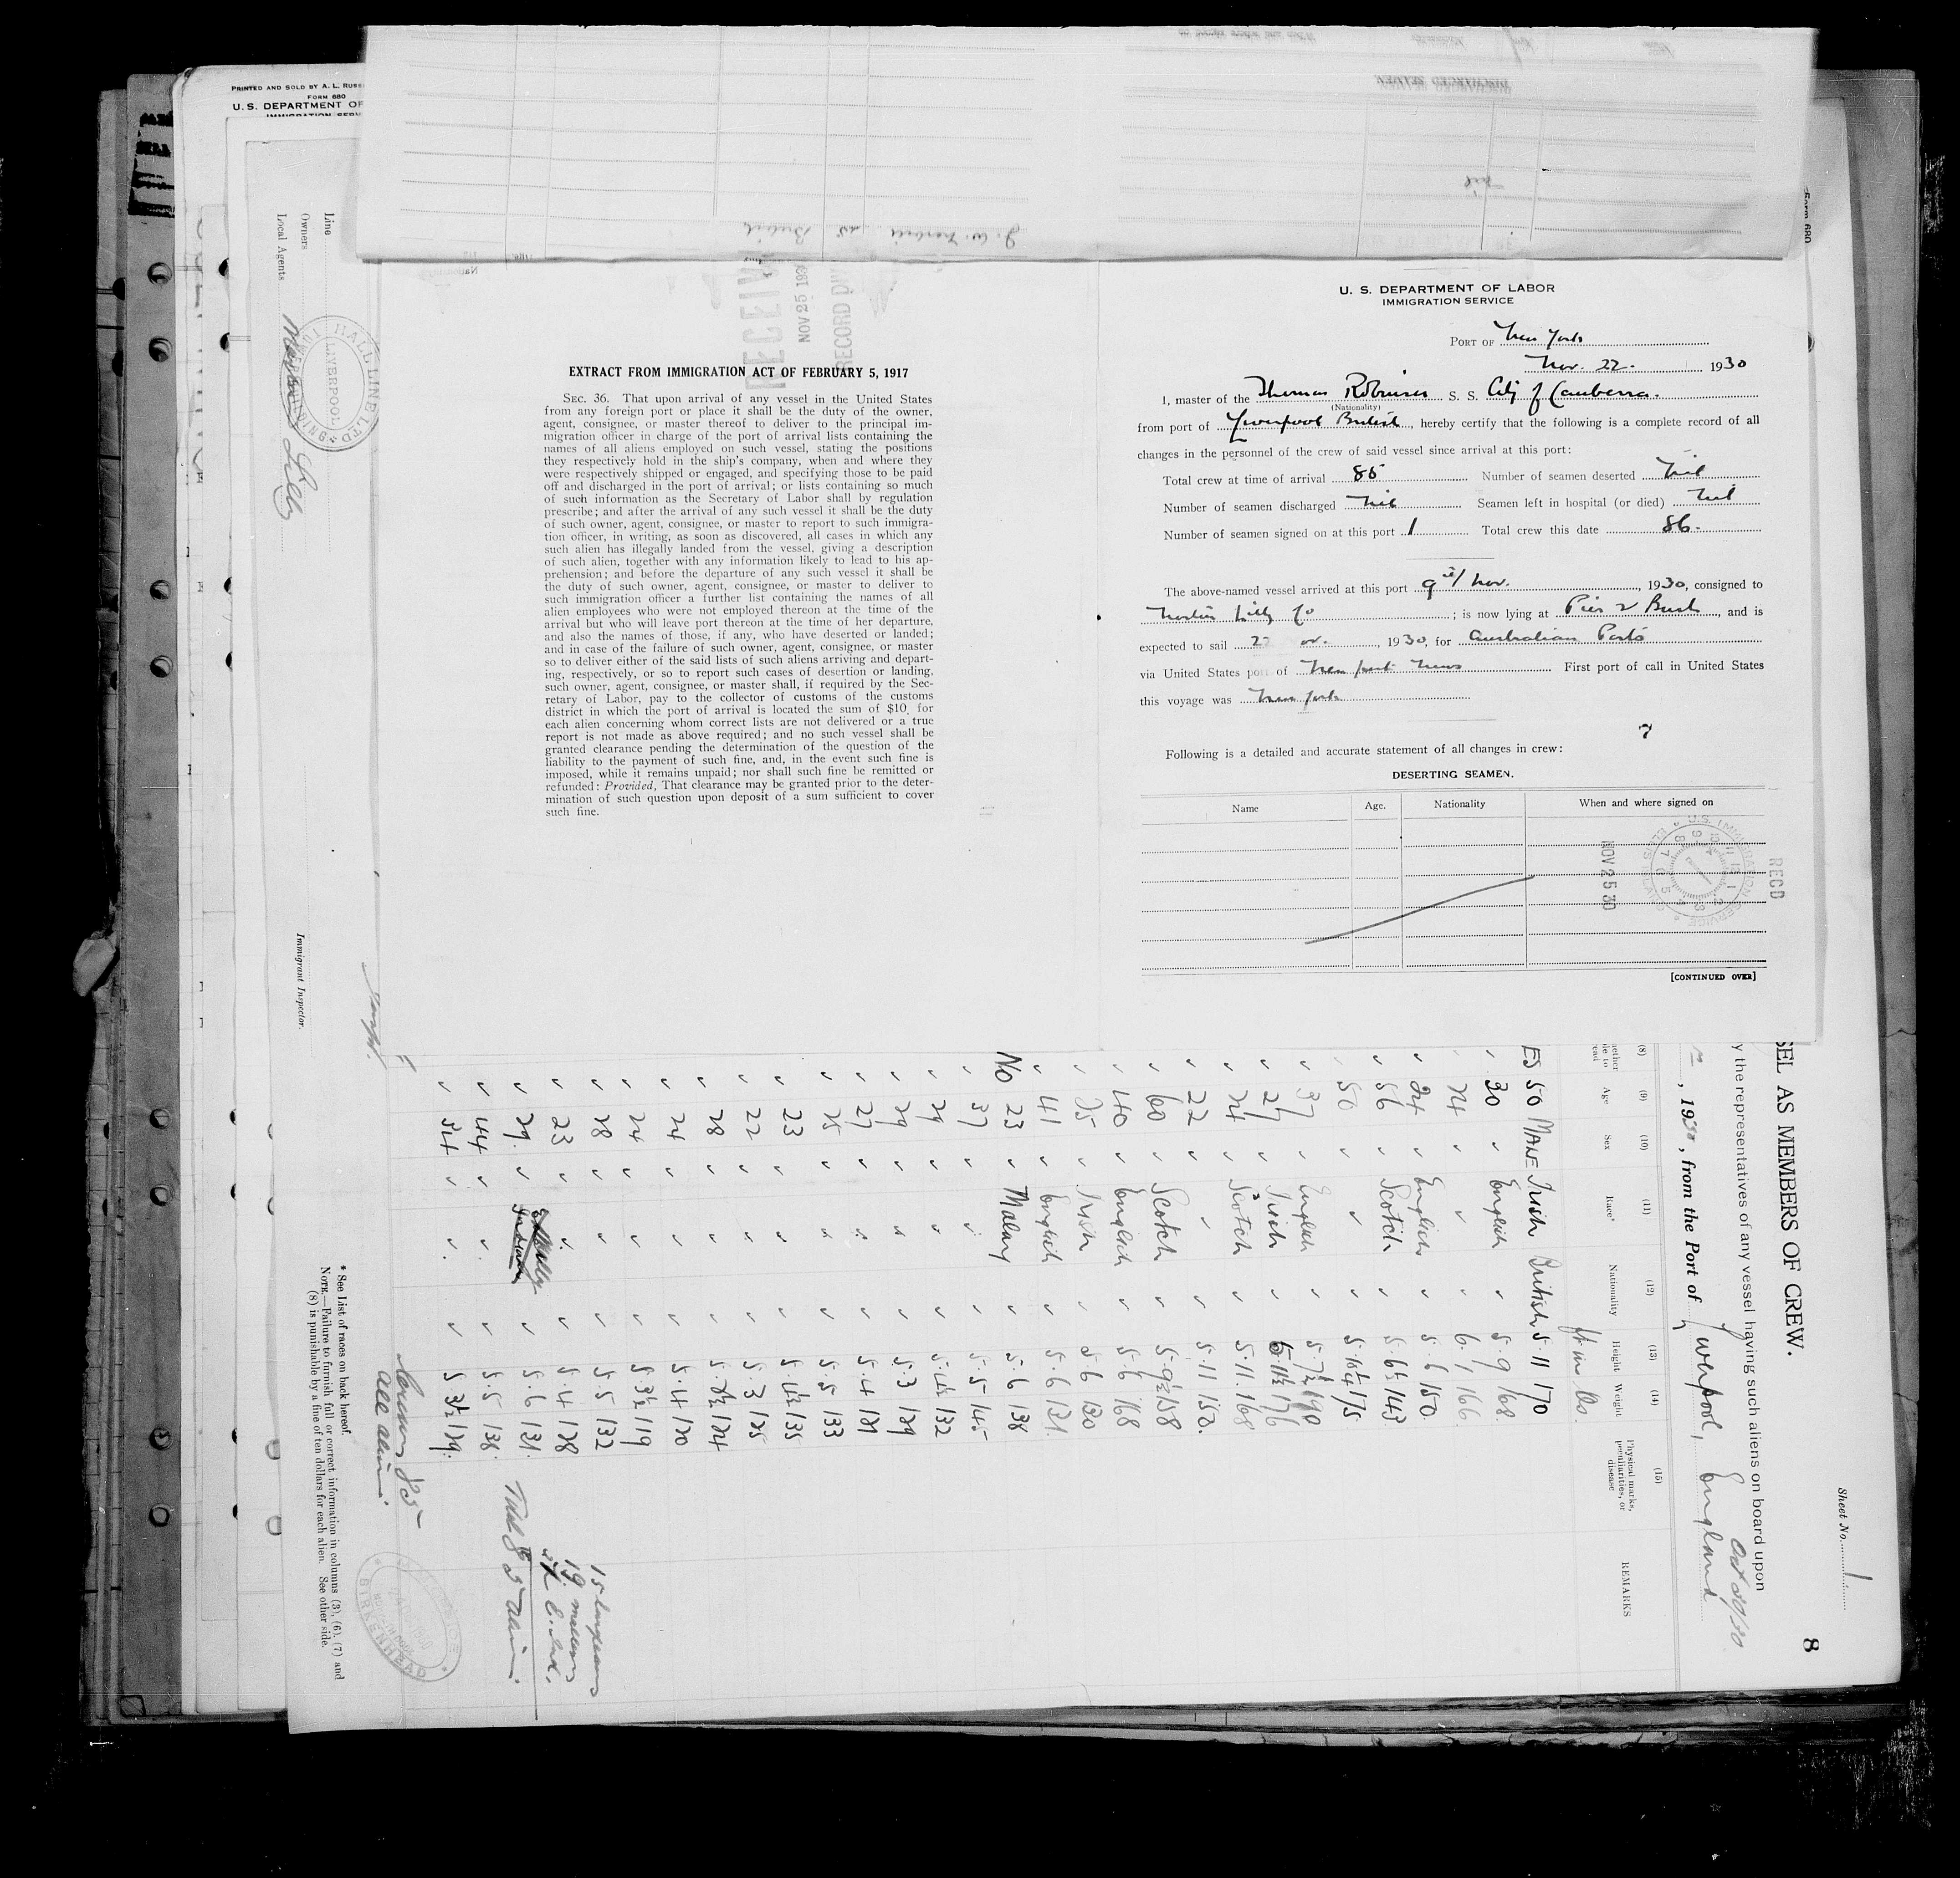 PRINTED AND SOLD BY A. L. RUSS
FORM 680
U. S. DEPARTMENT OF
IMMIGRATION SERV
Line
Owners
Local Agents
HALL LINE LTD
LIVERPOOL
Immigrant Inspector.
DISCHARGED SEAMEN.
Nil
British
NOV 25 193
RECORD DI
EXTRACT FROM IMMIGRATION ACT OF FEBRUARY 5, 1917
SEC. 36. That upon arrival of any vessel in the United States
from any foreign port or place it shall be the duty of the owner,
agent, consignee, or master thereof to deliver to the principal im-
migration officer in charge of the port of arrival lists containing the
names of all aliens employed on such vessel, stating the positions
they respectively hold in the ship's company, when and where they
were respectively shipped or engaged, and specifying those to be paid
off and discharged in the port of arrival; or lists containing so much
of such information as the Secretary of Labor shall by regulation
prescribe; and after the arrival of any such vessel it shall be the duty
of such owner, agent, consignee, or master to report to such immigra-
tion officer, in writing, as soon as discovered, all cases in which any
such alien has illegally landed from the vessel, giving a description
of such alien, together with any information likely to lead to his ap-
prehension; and before the departure of any such vessel it shall be
the duty of such owner, agent, consignee, or master to deliver to
such immigration officer a further list containing the names of all
alien employees who were not employed thereon at the time of the
arrival but who will leave port thereon at the time of her departure,
and also the names of those, if any, who have deserted or landed;
and in case of the failure of such owner, agent, consignee, or master
so to deliver either of the said lists of such aliens arriving and depart-
ing, respectively, or so to report such cases of desertion or landing,
such owner, agent, consignee, or master shall, if required by the Sec-
retary of Labor, pay to the collector of customs of the customs
district in which the port of arrival is located the sum of $10 for
each alien concerning whom correct lists are not delivered or a true
report is not made as above required; and no such vessel shall be
granted clearance pending the determination of the question of the
liability to the payment of such fine, and, in the event such fine is
imposed, while it remains unpaid; nor shall such fine be remitted or
refunded: Provided, That clearance may be granted prior to the deter-
mination of such question upon deposit of a sum sufficient to cover
such fine.
U. S. DEPARTMENT OF LABOR
IMMIGRATION SERVICE
PORT OF New York
Nov. 22. 1930
I, master of the Thomas Robinson S. S. City of Canberra.
(Nationality)
from port of Liverpool British, hereby certify that the following is a complete record of all
changes in the personnel of the crew of said vessel since arrival at this port:
Total crew at time of arrival 85 Number of seamen deserted Nil
Number of seamen discharged Nil Seamen left in hospital (or died) Nil
Number of seamen signed on at this port 1 Total crew this date 86.
The above-named vessel arrived at this port 9th/ Nov., 1930, consigned to
Norton Lilly Co; is now lying at Pier 2 Bush, and is
expected to sail 22 ov., 1930, for Australian Ports
via United States port of Newport News First port of call in United States
this voyage was New York
Following is a detailed and accurate statement of all changes in crew:
DESERTING SEAMEN.
Name Age. Nationality When and where signed on
U.S. IMMIGRATION SERVICE ELLIS ISLAND
NOV 25 30
RECD
[CONTINUED OVER]
Sheet No. 1
8
SEL AS MEMBERS OF CREW.
y the representatives of any vessel having such aliens on board upon
, 1930, from the Port of Liverpool, England
(8) (9) (10) (11) (12) (13) (14) (15)
Age Sex Race* Nationality Height Weight Physical marks, peculiarities, or disease REMARKS
ft ins lbs
ES 50 MALE Irish British 5 11 170
30 English 5 9 168
24 6 1 166
24 English 5 6 150
56 Scotch 5 6½ 143
50 175
37 English 5 7½ 190
27 Irish 5 11½ 176
24 Scotch 5.11. 168
22 5.11 150.
60 Scotch 5.9½ 158
40 English 5.6 168
35 Irish 5.6 130
41 English 5.6 131
No 23 Malay 5.6 138
37 5.5 145
29 5.4½ 132
29 5.3 129
27 5.4 129
25 5.5 133
23 5.4½ 135
22 5.3 125
28 124
24 5.4 120
24 5.3½ 119
28 5.5 132
23 5.4 128
29. 5.6 131.
44 5.5 138.
34 5 3½ 129.
15 Europeans
19
E. Ind.
Total 85 Aliens.
85
all aliens
* See List of races on back hereof.
NOTE.—Failure to furnish full or correct information in columns (3), (6), (7) and
(8) is punishable by a fine of ten dollars for each alien. See other side.
BIRKENHEAD